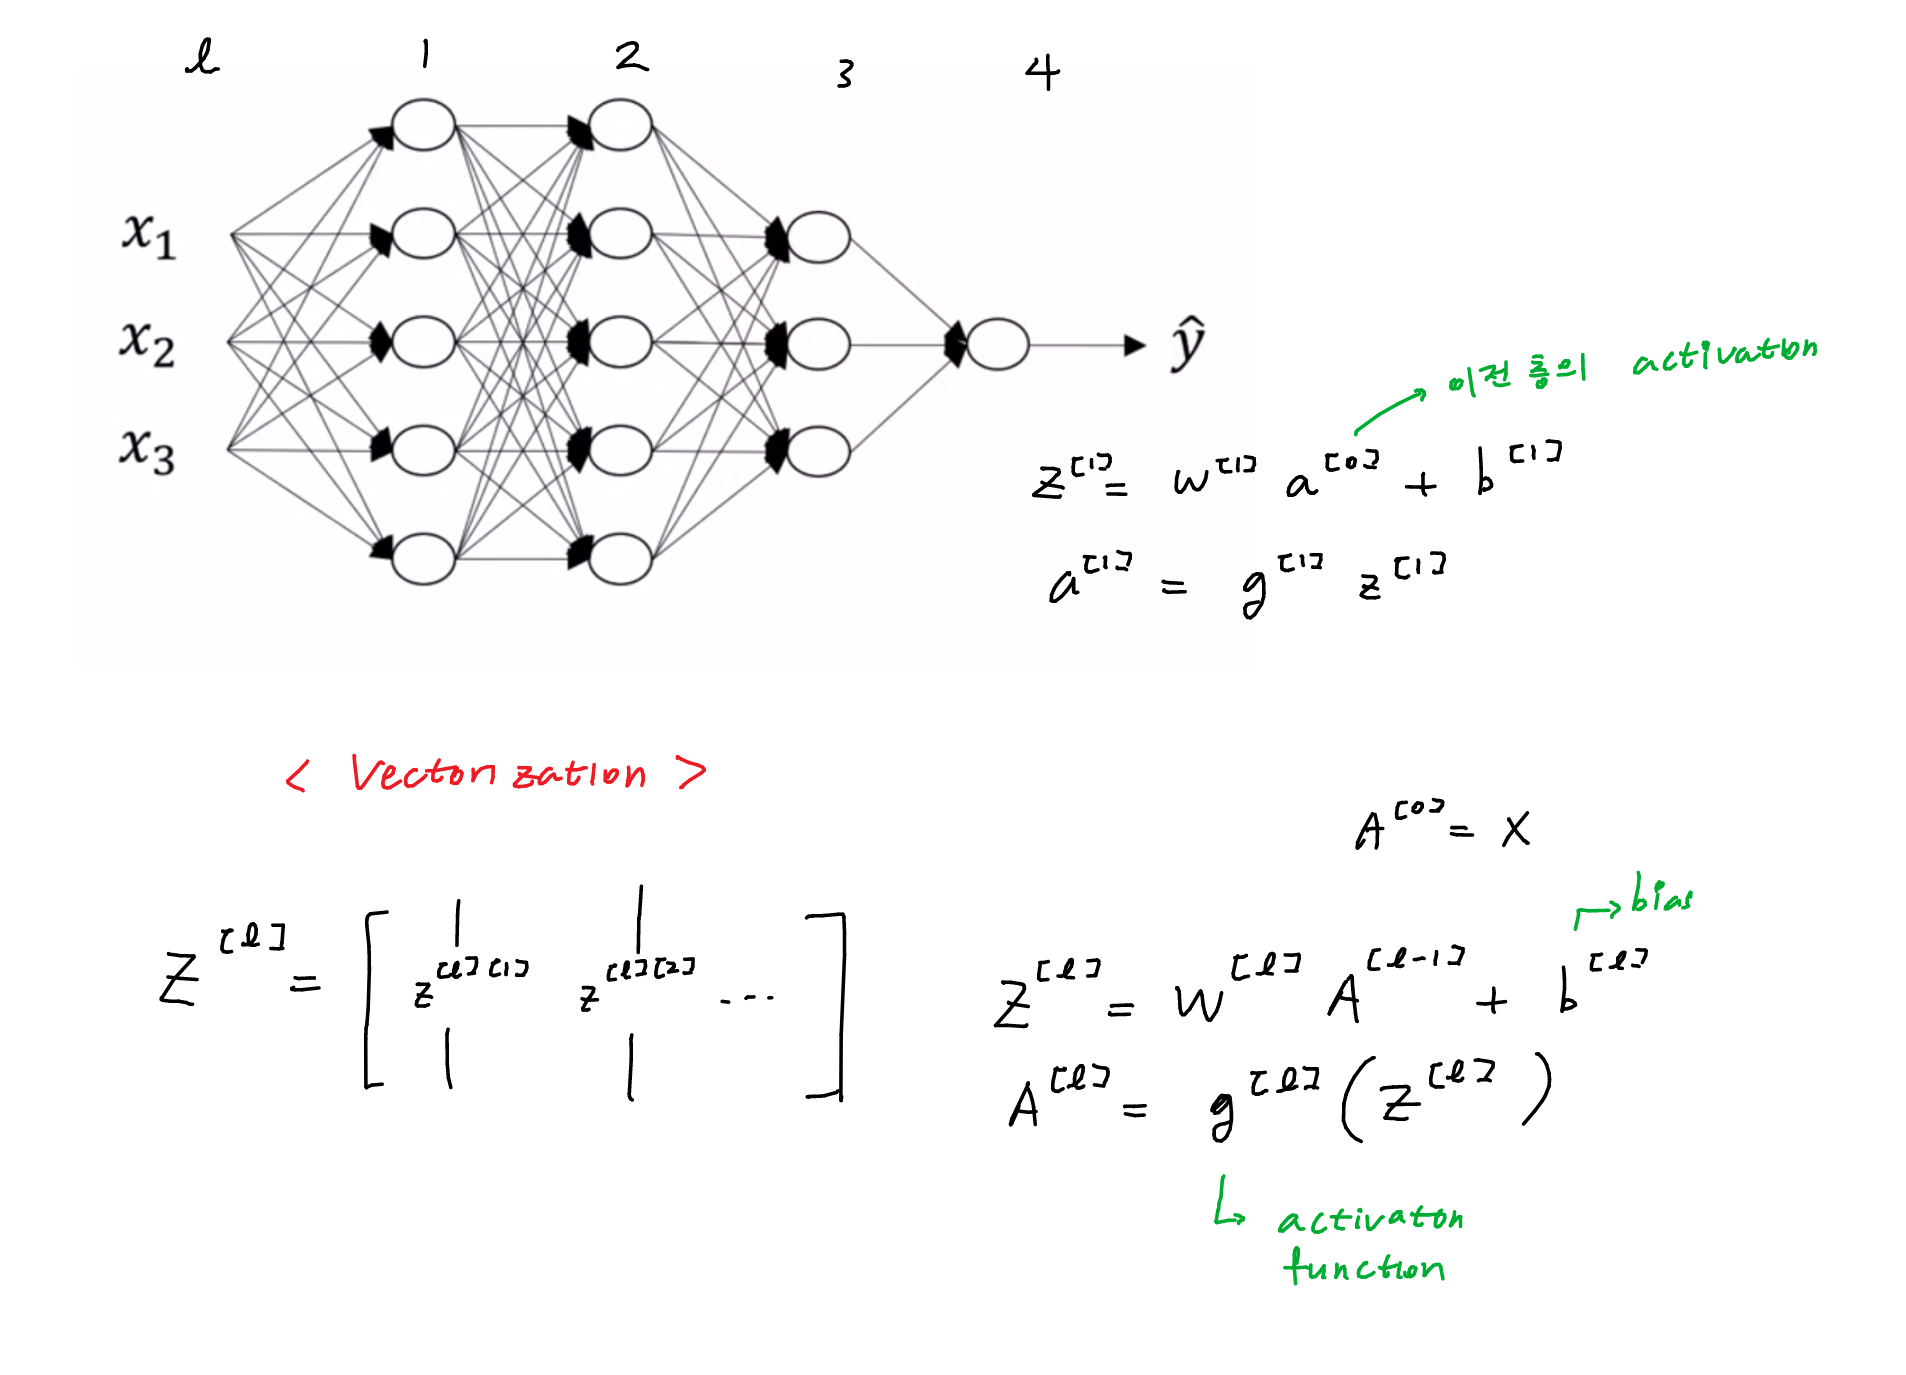 l 1 2 3 4
x₁
x₂
x₃
ŷ
이전 층의 activation
z^[1] = w^[1] a^[0] + b^[1]
a^[1] = g^[1] z^[1]
< Vectorization >
A^[0] = X
bias
Z^[l] = [ z^[l](1) z^[l][2] ... ]
Z^[l] = W^[l] A^[l-1] + b^[l]
A^[l] = g^[l] (Z^[l])
activaton
function